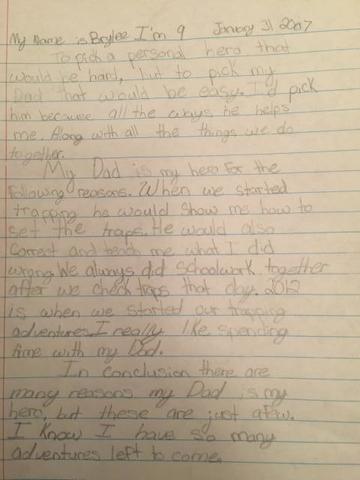 My Name is Brylee I'm 9 January 31 2017
To pick a personal hero that
would be hard, but to pick my
Dad that would be easy. I'd pick
him because all the ways he helps
me. Along with all the things we do
together.
My Dad is my hero for the
following reasons. When we started
trapping he would show me how to
set the traps. He would also
correct and teach me what I did
wrong. We always did schoolwork together
after we check traps that day. 2012
is when we started our trapping
adventures. I really like spending
time with my Dad.
In conclusion there are
many reasons my Dad is my
hero, but these are just afew.
I Know I have so many
adventures left to come.